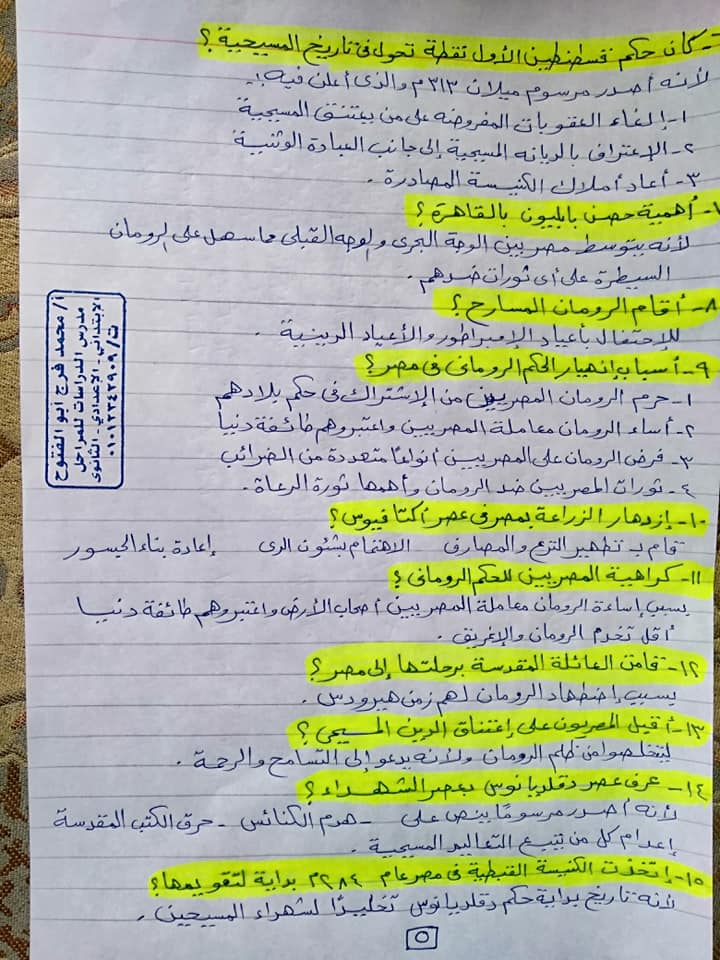 - كان حكم قسطنطين الأول نقطة تحول فى تاريخ المسيحية ؟
لأنه أصدر مرسوم ميلان ٣١٣م والذى أعلن فيه :-
١- إلغاء العقوبات المفروضه على من يعتنق المسيحية
٢- الإعتراف بالديانه المسيحية إلى جانب العبادة الوثنية
٣- أعاد أملاك الكنيسة المصادرة .
٧- أهمية حصن بابليون بالقاهرة ؟
لأنه يتوسط مصر بين الوجة البحرى والوجه القبلى مما سهل على الرومان
السيطرة على أى ثورات ضدهم .
٨- أقام الرومان المسارح ؟
للإحتفال بأعياد الإمبراطور والأعياد الدينية .
٩- أسباب إنهيار الحكم الرومانى فى مصر ؟
١- حرم الرومان المصريين من الإشتراك فى حكم بلادهم
٢- أساء الرومان معاملة المصريين واعتبروهم طائفة دنيا
٣- فرض الرومان على المصريين أنواعًا متعددة من الضرائب
٤- ثورات المصريين ضد الرومان وأهمها ثورة الرعاة .
١٠- إزدهار الزراعة بمصر فى عصر أكتافيوس ؟
قام بـ تطهير الترع والمصارف الاهتمام بشئون الرى إعادة بناء الجسور
١١- كراهية المصريين للحكم الرومانى ؟
بسبب إساءة الرومان معاملة المصريين أصحاب الأرض واعتبروهم طائفة دنيا
أقل تخدم الرومان والإغريق .
١٢- قامت العائلة المقدسة برحلتها إلى مصر ؟
بسبب إضطهاد الرومان لهم زمن هيرودس .
١٣- أقبل المصريون على إعتناق الدين المسيحى ؟
ليتخلصوا من ظلم الرومان ولأنه يدعو إلى التسامح والرحمة .
١٤- عرف عصر دقلديانوس بعصر الشهداء ؟
لأنه أصدر مرسومًا ينص على - هدم الكنائس - حرق الكتب المقدسة
إعدام كل من يتبع التعاليم المسيحية .
١٥- إتخذت الكنيسة القبطية فى مصر عام ٢٨٤م بداية لتقويمها ؟
لأنه تاريخ بداية حكم دقلديانوس تخليدًا لشهداء المسيحيين .
٥
أ/ محمد فرج ابو الفتوح
مدرس الدراسات للمراحل
الإبتدائي - الإعدادي - الثانوى